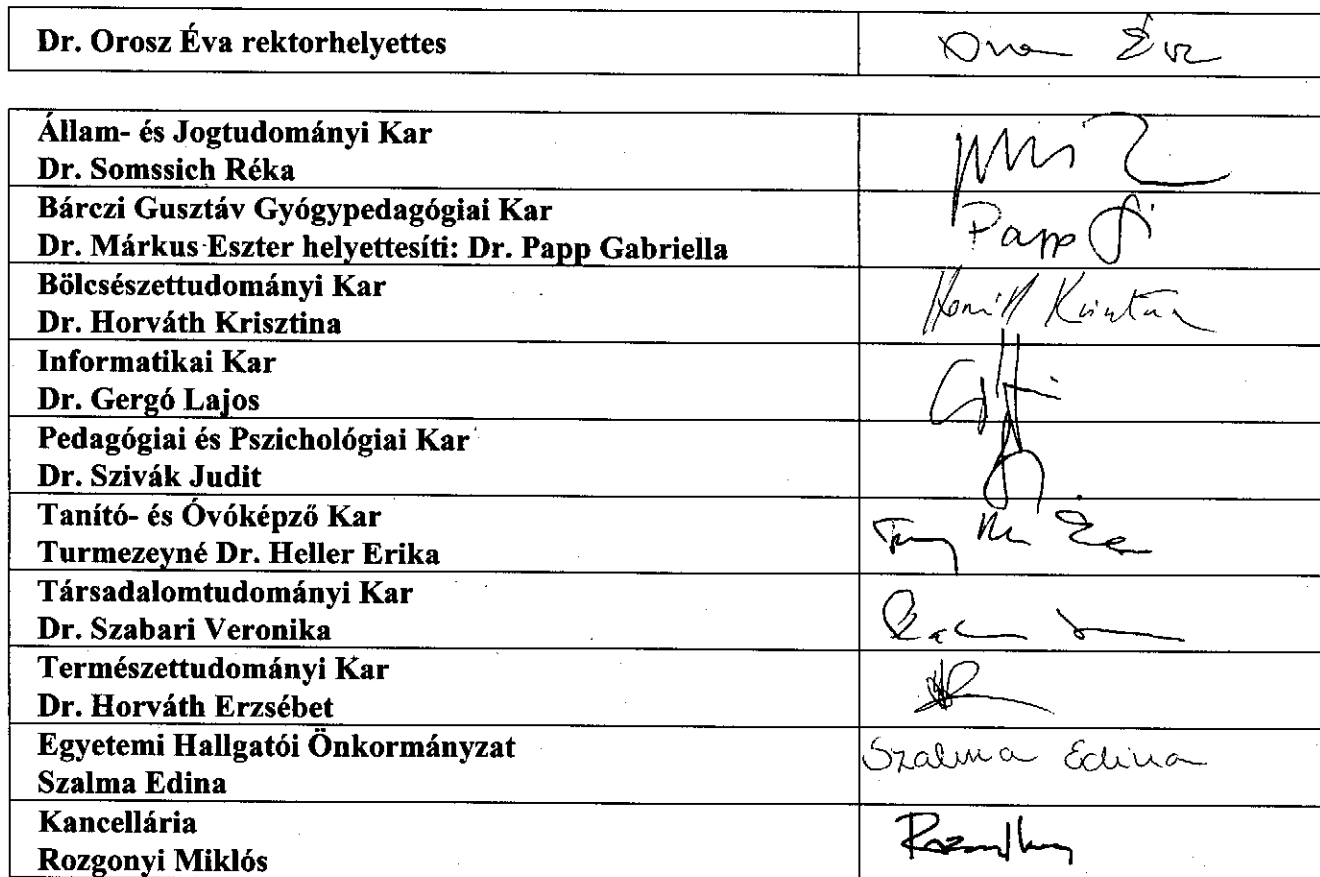 Dr. Orosz Éva rektorhelyettes
Állam- és Jogtudományi Kar
Dr. Somssich Réka
Bárczi Gusztáv Gyógypedagógiai Kar
Papp
Dr. Márkus Eszter helyettesíti: Dr. Papp Gabriella
Bölcsészettudományi Kar
Dr. Horváth Krisztina
Informatikai Kar
Dr. Gergó Lajos
Pedagógiai és Pszichológiai Kar
Dr. Szivák Judit
Tanító- és Óvóképző Kar
Turmezeyné Dr. Heller Erika
Társadalomtudományi Kar
Dr. Szabari Veronika
Természettudományi Kar
Dr. Horváth Erzsébet
Egyetemi Hallgatói Önkormányzat
Szalma Edina
Szalma Edina
Kancellária
Rozgonyi Miklós